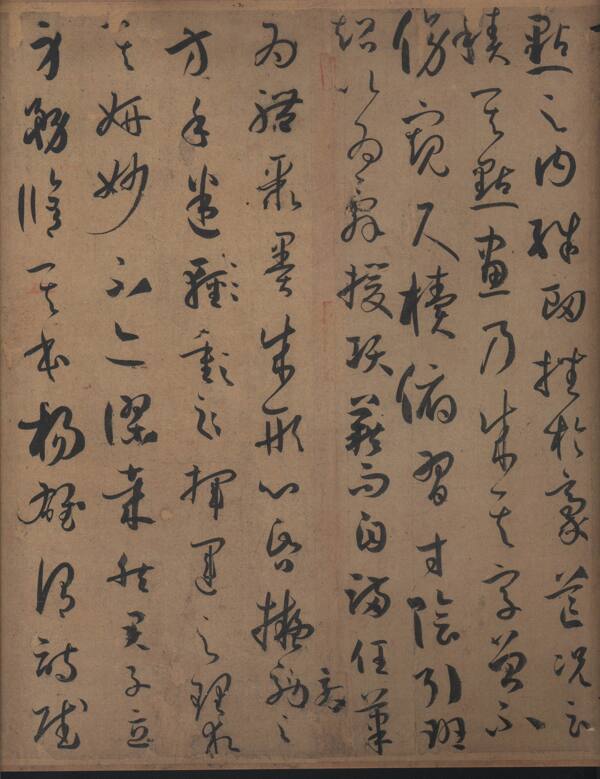 點之內殊衄挫於豪芒況云
積其點畫乃成其字曾不
傍窺尺櫝俯習寸陰引班
超以為辭援項籍而自滿任筆
為體聚墨成形心昏擬效之
方手迷揮運之理求
其妍妙不亦謬哉然君子立
身務脩其本楊雄謂詩賦